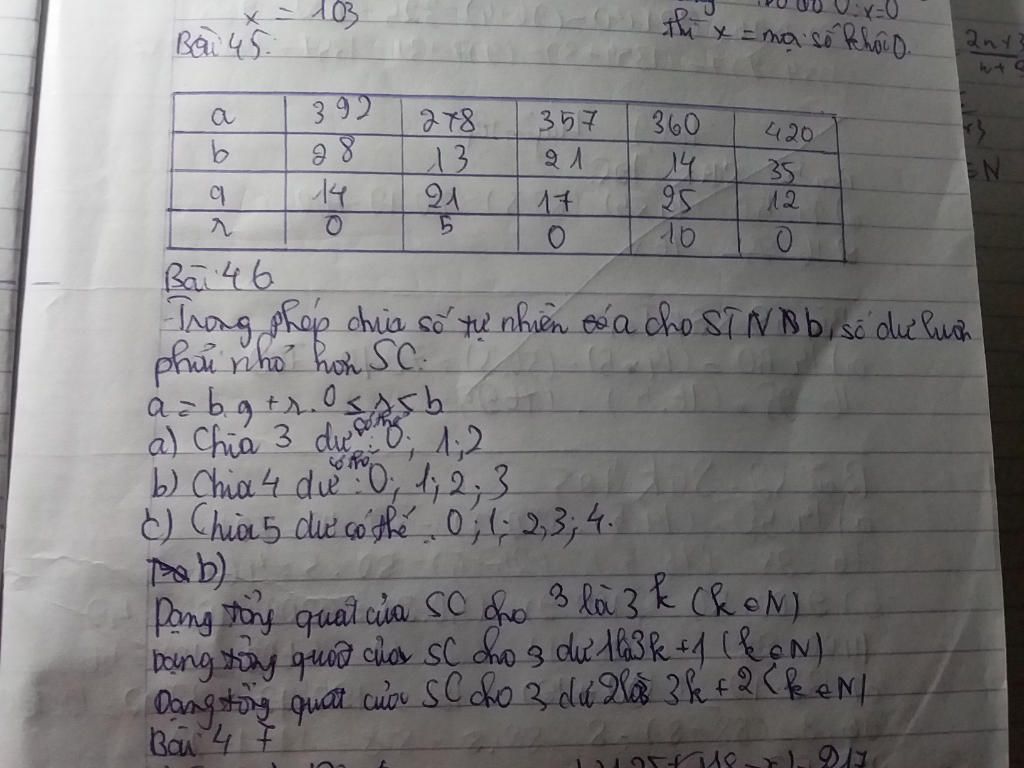 x = 103
thì x = mọi số khác 0.
Bài 45:
a 392 278 357 360 420
b 28 13 21 14 35
q 14 21 17 25 12
r 0 5 0 10 0
Bài 46
-Trong phép chia số tự nhiên a cho STN b, số dư luôn
phải nhỏ hơn SC.
a = b.q + r. 0 ≤ r ≤ b
a) Chia 3 dư có thể : 0; 1; 2
b) Chia 4 dư có thể : 0; 1; 2; 3
c) Chia 5 dư có thể : 0; 1; 2; 3; 4.
b)
Dạng tổng quát của SC cho 3 là 3k (k ∈ N)
Dạng tổng quát của SC cho 3 dư 1 là 3k + 1 (k ∈ N)
Dạng tổng quát của SC cho 3 dư 2 là 3k + 2 (k ∈ N)
Bài 47